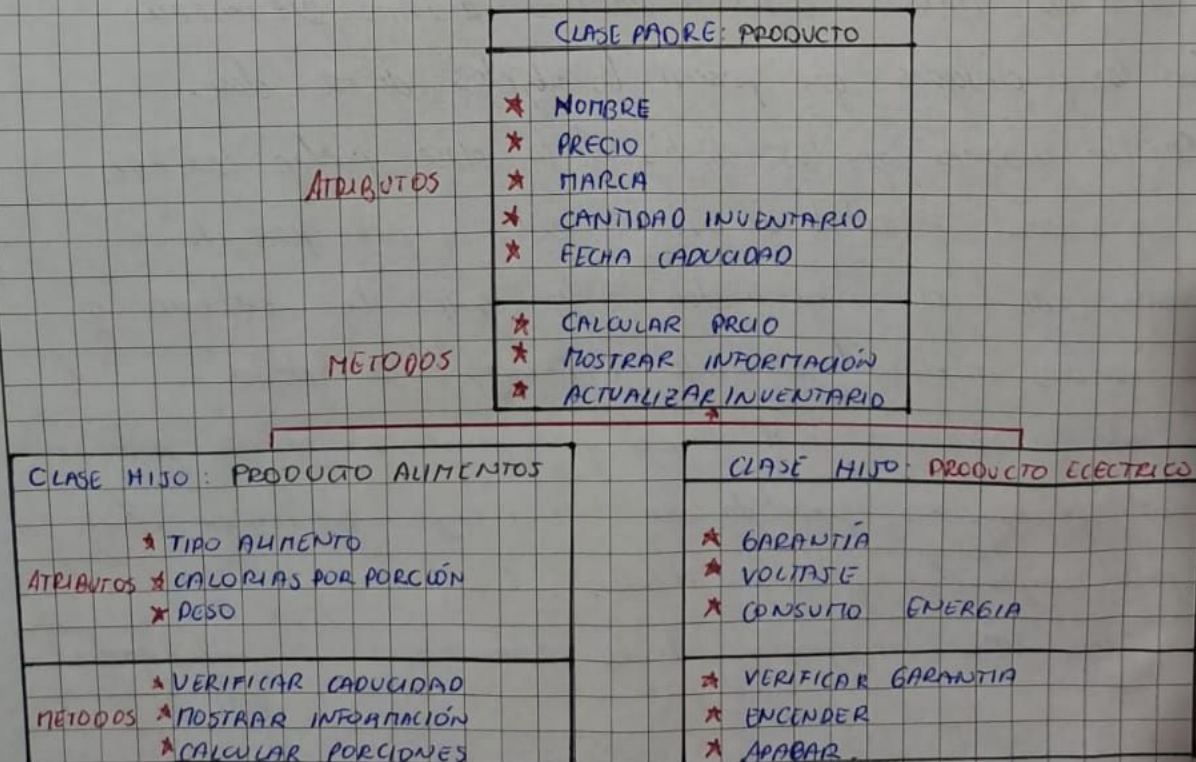 CLASE PADRE: PRODUCTO
ATRIBUTOS
* NOMBRE
* PRECIO
* MARCA
* CANTIDAD INVENTARIO
* FECHA CADUCIDAD
METODOS
* CALCULAR PRCIO
* MOSTRAR INFORMACIÓN
* ACTUALIZAR INVENTARIO
CLASE HIJO: PRODUCTO ALIMENTOS
ATRIBUTOS
* TIPO ALIMENTO
* CALORIAS POR PORCIÓN
* PESO
METODOS
* VERIFICAR CADUCIDAD
* MOSTRAR INFORMACIÓN
* CALCULAR PORCIONES
CLASE HIJO: PRODUCTO ELECTRICO
* GARANTÍA
* VOLTAJE
* CONSUMO ENERGIA
* VERIFICAR GARANTIA
* ENCENDER
* APAGAR.